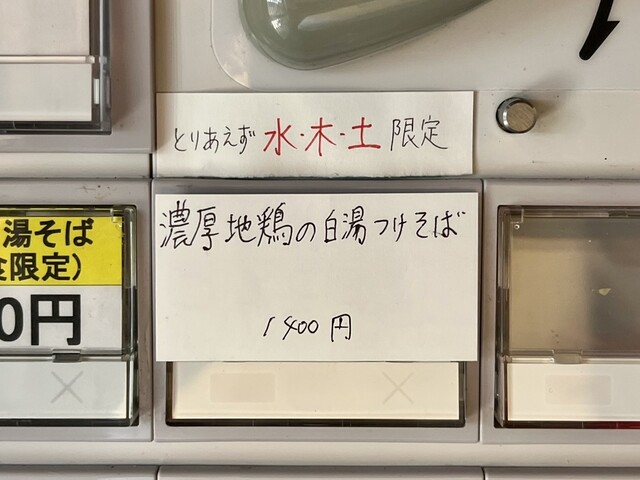 とりあえず 水・木・土 限定
濃厚地鶏の白湯つけそば
1400円
湯そば
食限定)
0円